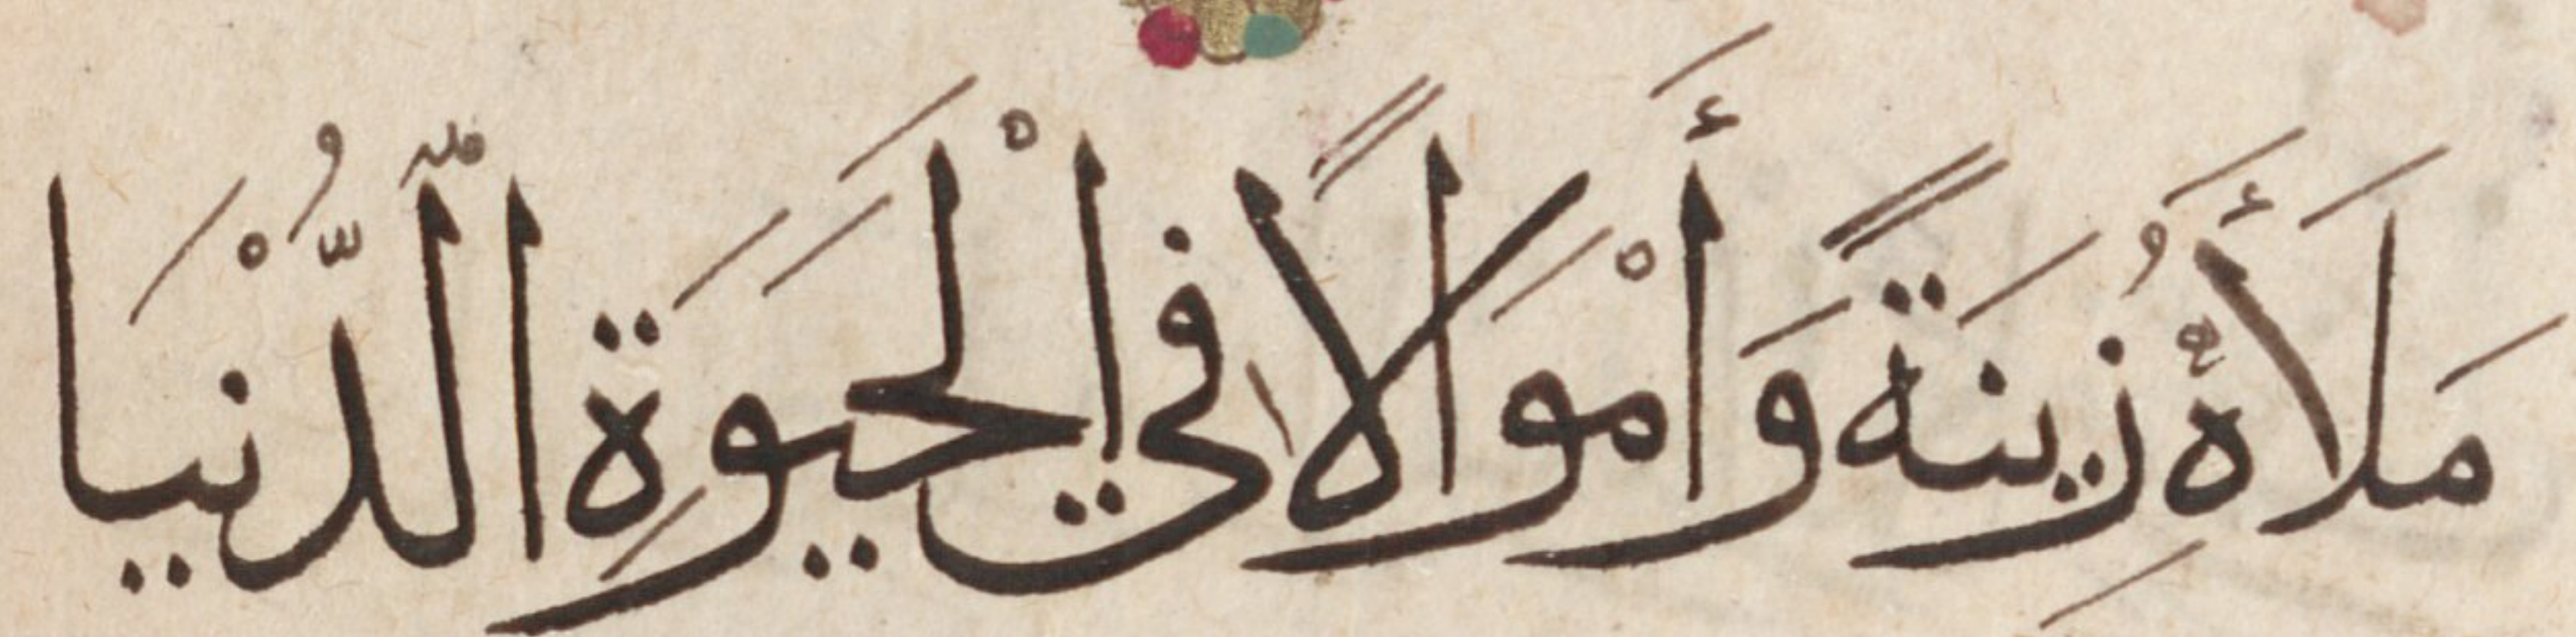 مَلَأَهُ زِينَةً وَأَمْوَالًا فِي الْحَيَوةِ الدُّنْيَا